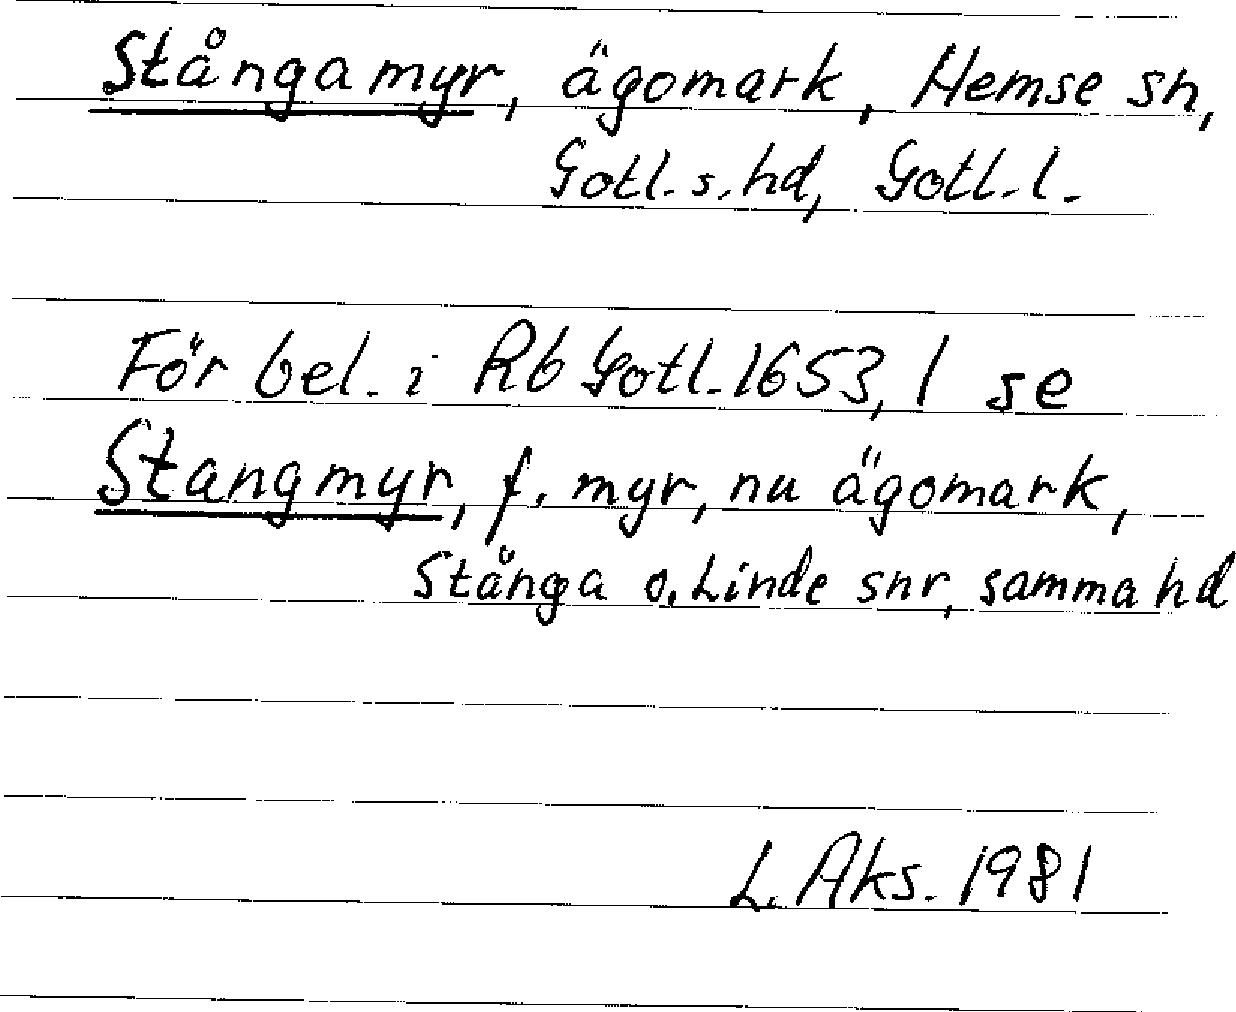 Stångamyr, ägomark, Hemse sn,
Gotl. s. hd, Gotl. l.
För bel. i Rb Gotl. 1653, 1 se
Stangmyr, f. myr, nu ägomark,
Stånga o. Linde snr, samma hd
L. Aks. 1981